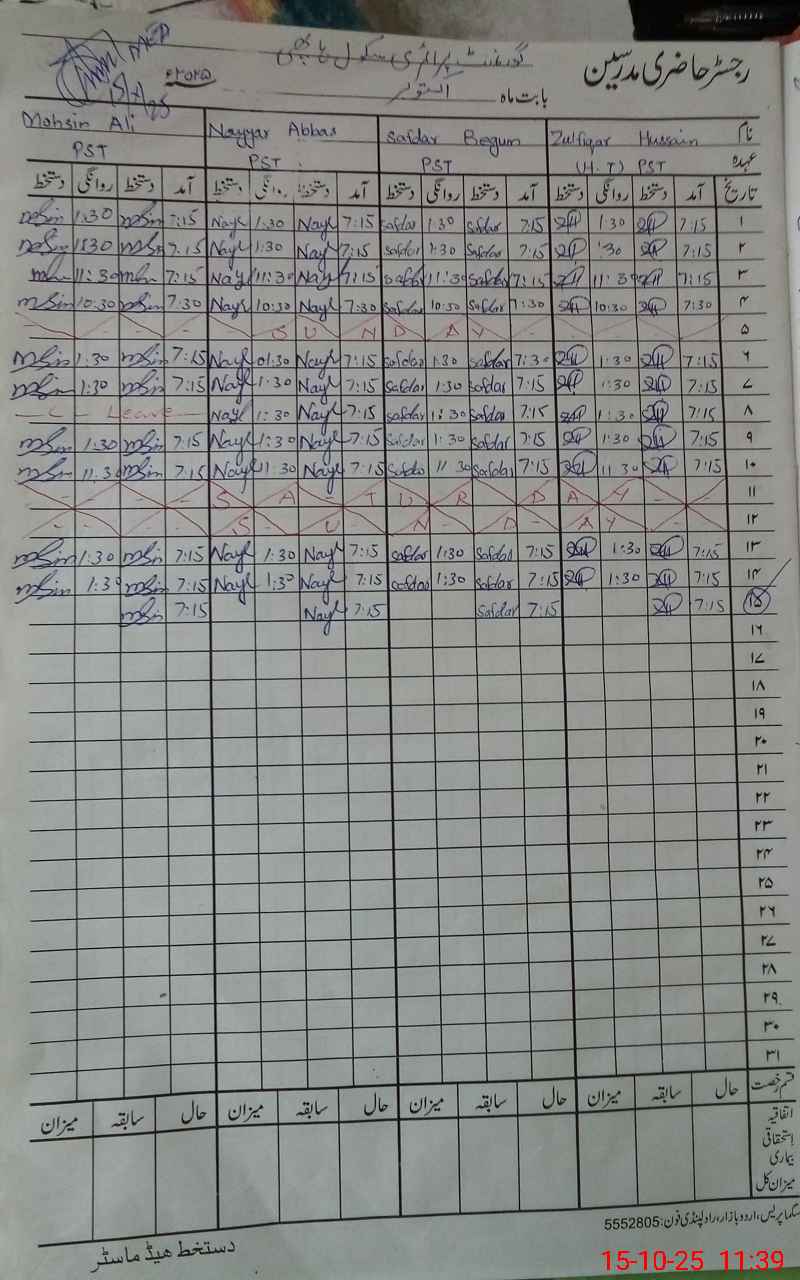 رجسٹر حاضری مدرسین
گورنمنٹ پرائمری سکول
بابت ماہ اکتوبر ۲۰۲۵ء
MEA
15/X/25
نام Zulfiqar Hussain Safdar Begum Nayyar Abbas Mohsin Ali
عہدہ (H.T) PST PST PST PST
تاریخ آمد دستخط روانگی دستخط آمد دستخط روانگی دستخط آمد دستخط روانگی دستخط آمد دستخط روانگی دستخط
۱ 7:15 1:30 7:15 Safdar 1:30 Safdar 7:15 Nayl 1:30 Nayl 7:15 mSin 1:30 mSin
۲ 7:15 :30 7:15 Safdar 1:30 Safdar 7:15 Nayl 1:30 Nayl 7:15 mSin 1:30 mSin
۳ 7:15 11:30 7:15 Safdar 11:30 Safdar 7:15 Nayl 11:30 Nayl 7:15 11:30
۴ 7:30 10:30 7:30 Safdar 10:30 Safdar 7:30 Nayl 10:30 Nayl 7:30 mSin 10:30 mSin
۵ S U N D A Y
۶ 7:15 1:30 7:30 Safdar 1:30 Safdar 7:15 Nayl 01:30 Nayl 7:15 mSin 1:30 mSin
۷ 7:15 1:30 7:15 Safdar 1:30 Safdar 7:15 Nayl 1:30 Nayl 7:15 mSin 1:30 mSin
۸ 7:15 1:30 7:15 Safdar 1:30 Safdar 7:15 Nayl 1:30 Nayl — C - Leave —
۹ 7:15 1:30 7:15 Safdar 1:30 Safdar 7:15 Nayl 1:30 Nayl 7:15 mSin 1:30 mSin
۱۰ 7:15 11:30 7:15 Safdar 11:30 Safdar 7:15 Nayl 11:30 Nayl 7:15 mSin 11:30 mSin
۱۱ S A T U R D A Y
۱۲ S U N D A Y
۱۳ 7:15 1:30 7:15 Safdar 1:30 Safdar 7:15 Nayl 1:30 Nayl 7:15 mSin 1:30 mSin
۱۴ 7:15 1:30 7:15 Safdar 1:30 Safdar 7:15 Nayl 1:30 Nayl 7:15 mSin 1:30 mSin
۱۵ 7:15 7:15 Safdar 7:15 Nayl 7:15 mSin
۱۶
۱۷
۱۸
۱۹
۲۰
۲۱
۲۲
۲۳
۲۴
۲۵
۲۶
۲۷
۲۸
۲۹
۳۰
۳۱
قسم رخصت حال سابقہ میزان حال سابقہ میزان حال سابقہ میزان حال سابقہ میزان
اتفاقیہ
استحقاقی
بیماری
میزان کل
سگما پریس، اردو بازار، راولپنڈی فون: 5552805
دستخط ہیڈ ماسٹر
15-10-25 11:39